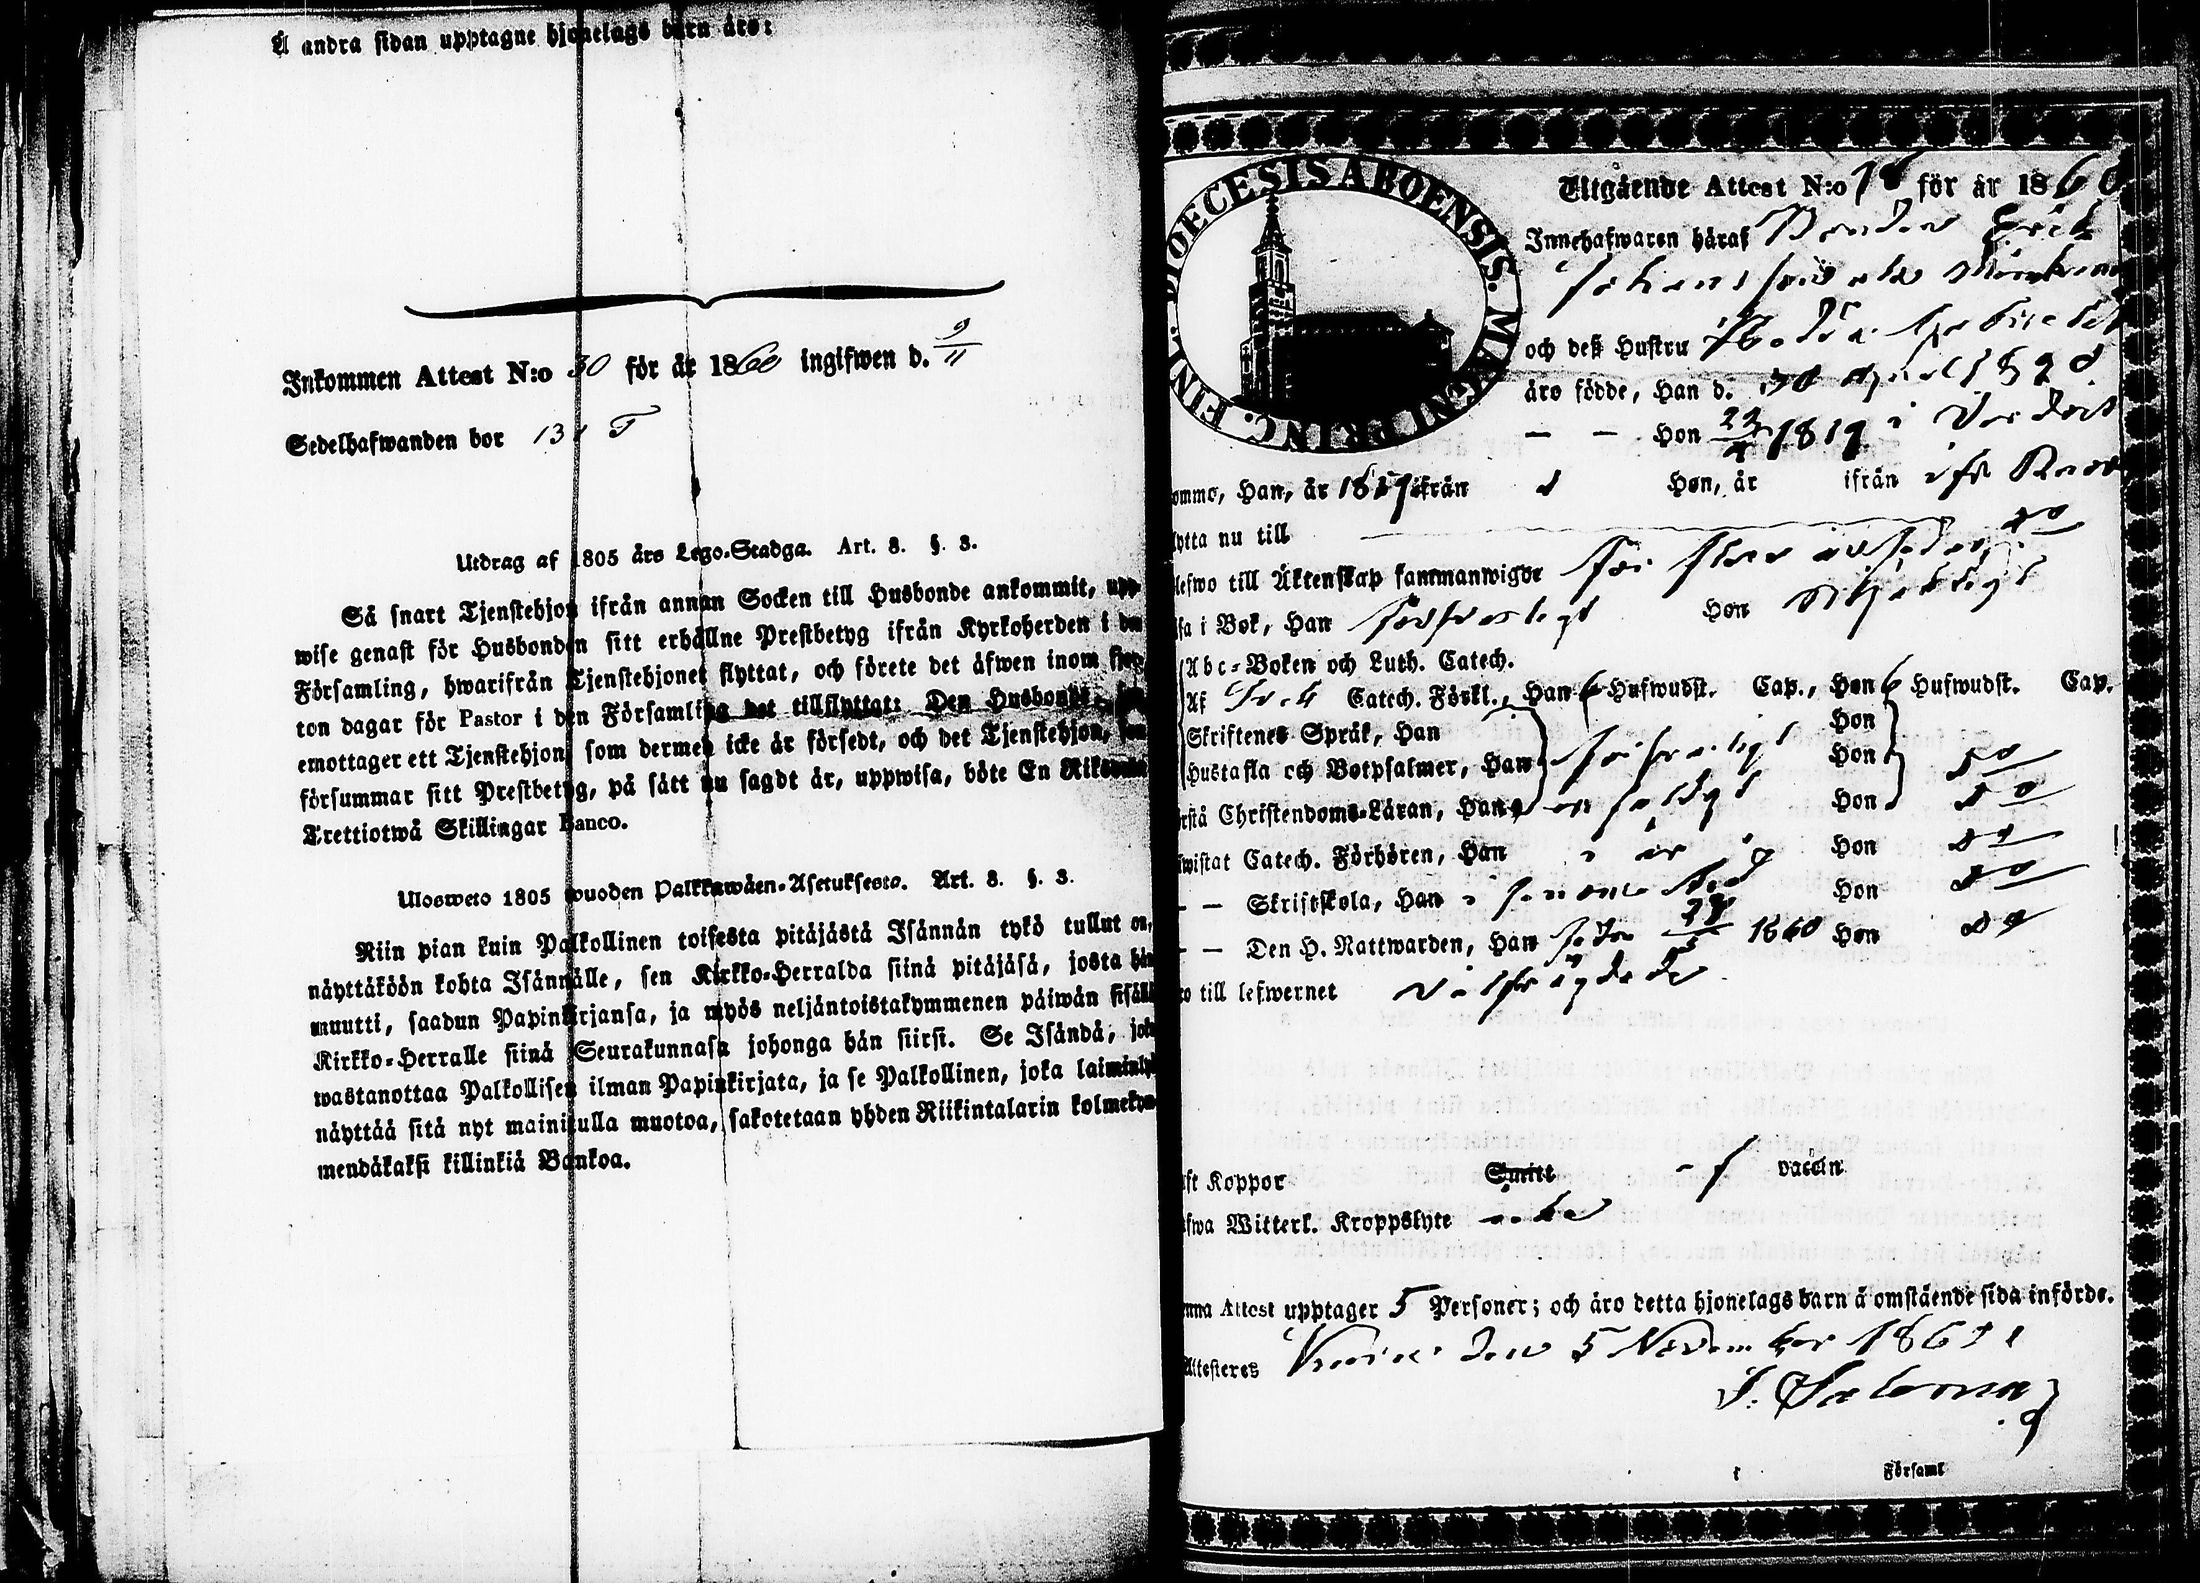 Å andra sidan upptagne hjonelags barn äro:
Inkommen Attest N:o 30 för år 1860 ingifwen d. 9/11
Sedelhafwanden bor 131 T
Utdrag af 1805 års Lego-Stadga. Art. 8. §. 3.
Så snart Tjenstehjon ifrån annan Socken till Husbonde ankommit, upp-
wise genast för Husbonden sitt erhållne Prestbetyg ifrån Kyrkoherden i den
Församling, hwarifrån Tjenstehjonet flyttat, och förete det äfwen inom fjor-
ton dagar för Pastor i den Församling det tillflyttat: Den Husbonde, som
emottager ett Tjenstehjon som dermed icke är försedt, och det Tjenstehjon, som
försummar sitt Prestbetyg, på sätt nu sagdt är, uppwisa, böte En Riksdaler
Trettiotwå Skillingar Banco.
Ulosweto 1805 wuoden Palkkawäen-Asetuksesta. Art. 8. §. 3.
Niin pian kuin Palkollinen toisesta pitäjästä Isännän tykö tullut on,
näyttäköön kohta Isännälle, sen Kirkko-Herralda siinä pitäjäsä, josta hän
muutti, saadun Papinkirjansa, ja myös neljäntoistakymmenen päiwän sisällä
Kirkko-Herralle siinä Seurakunnasa johonga hän siirsi. Se Isändä, joka
wastanottaa Palkollisen ilman Papinkirjata, ja se Palkollinen, joka laiminlyö
näyttää sitä nyt mainitulla muotoa, sakotetaan yhden Riikintalarin kolmekym-
mendäkaksi killinkiä Bankoa.
DIOECESIS ABOENSIS. MAGNI PRINC. FINL.
Utgående Attest N:o 78 för år 1860
Innehafwaren häraf Bonden Erik
Johansson
och deß Hustru Hedda
äro födde, Han d. 30 April 1820
— — Hon 23/4 1819 i
ommo, Han, år ifrån Hon, år ifrån
lytta nu till
lefwo till Äktenskap sammanwigde
sa i Bok, Han försvarligt Hon
Abc-Boken och Luth. Catech.
Af Catech. Förkl., Han 6 Hufwudst. Cap., Hon 6 Hufwudst. Cap.
Skriftenes Språk, Han Hon
Hustafla och Botpsalmer, Han försvarligt Hon do
rstå Christendoms-Läran, Han enfaldigt Hon do
wistat Catech. Förhören, Han i år Hon do
— — Skriftskola, Han i Hon do
— — Den H. Nattwarden, Han sedan 1860 Hon do
ro till lefwernet välfrägdade
ft Koppor Smitt vaccin
fwa Witterl. Kroppslyte icke
nna Attest upptager 5 Personer; och äro detta hjonelags barn å omstående sida införde.
Attesteres den 5 November 1860
Församl